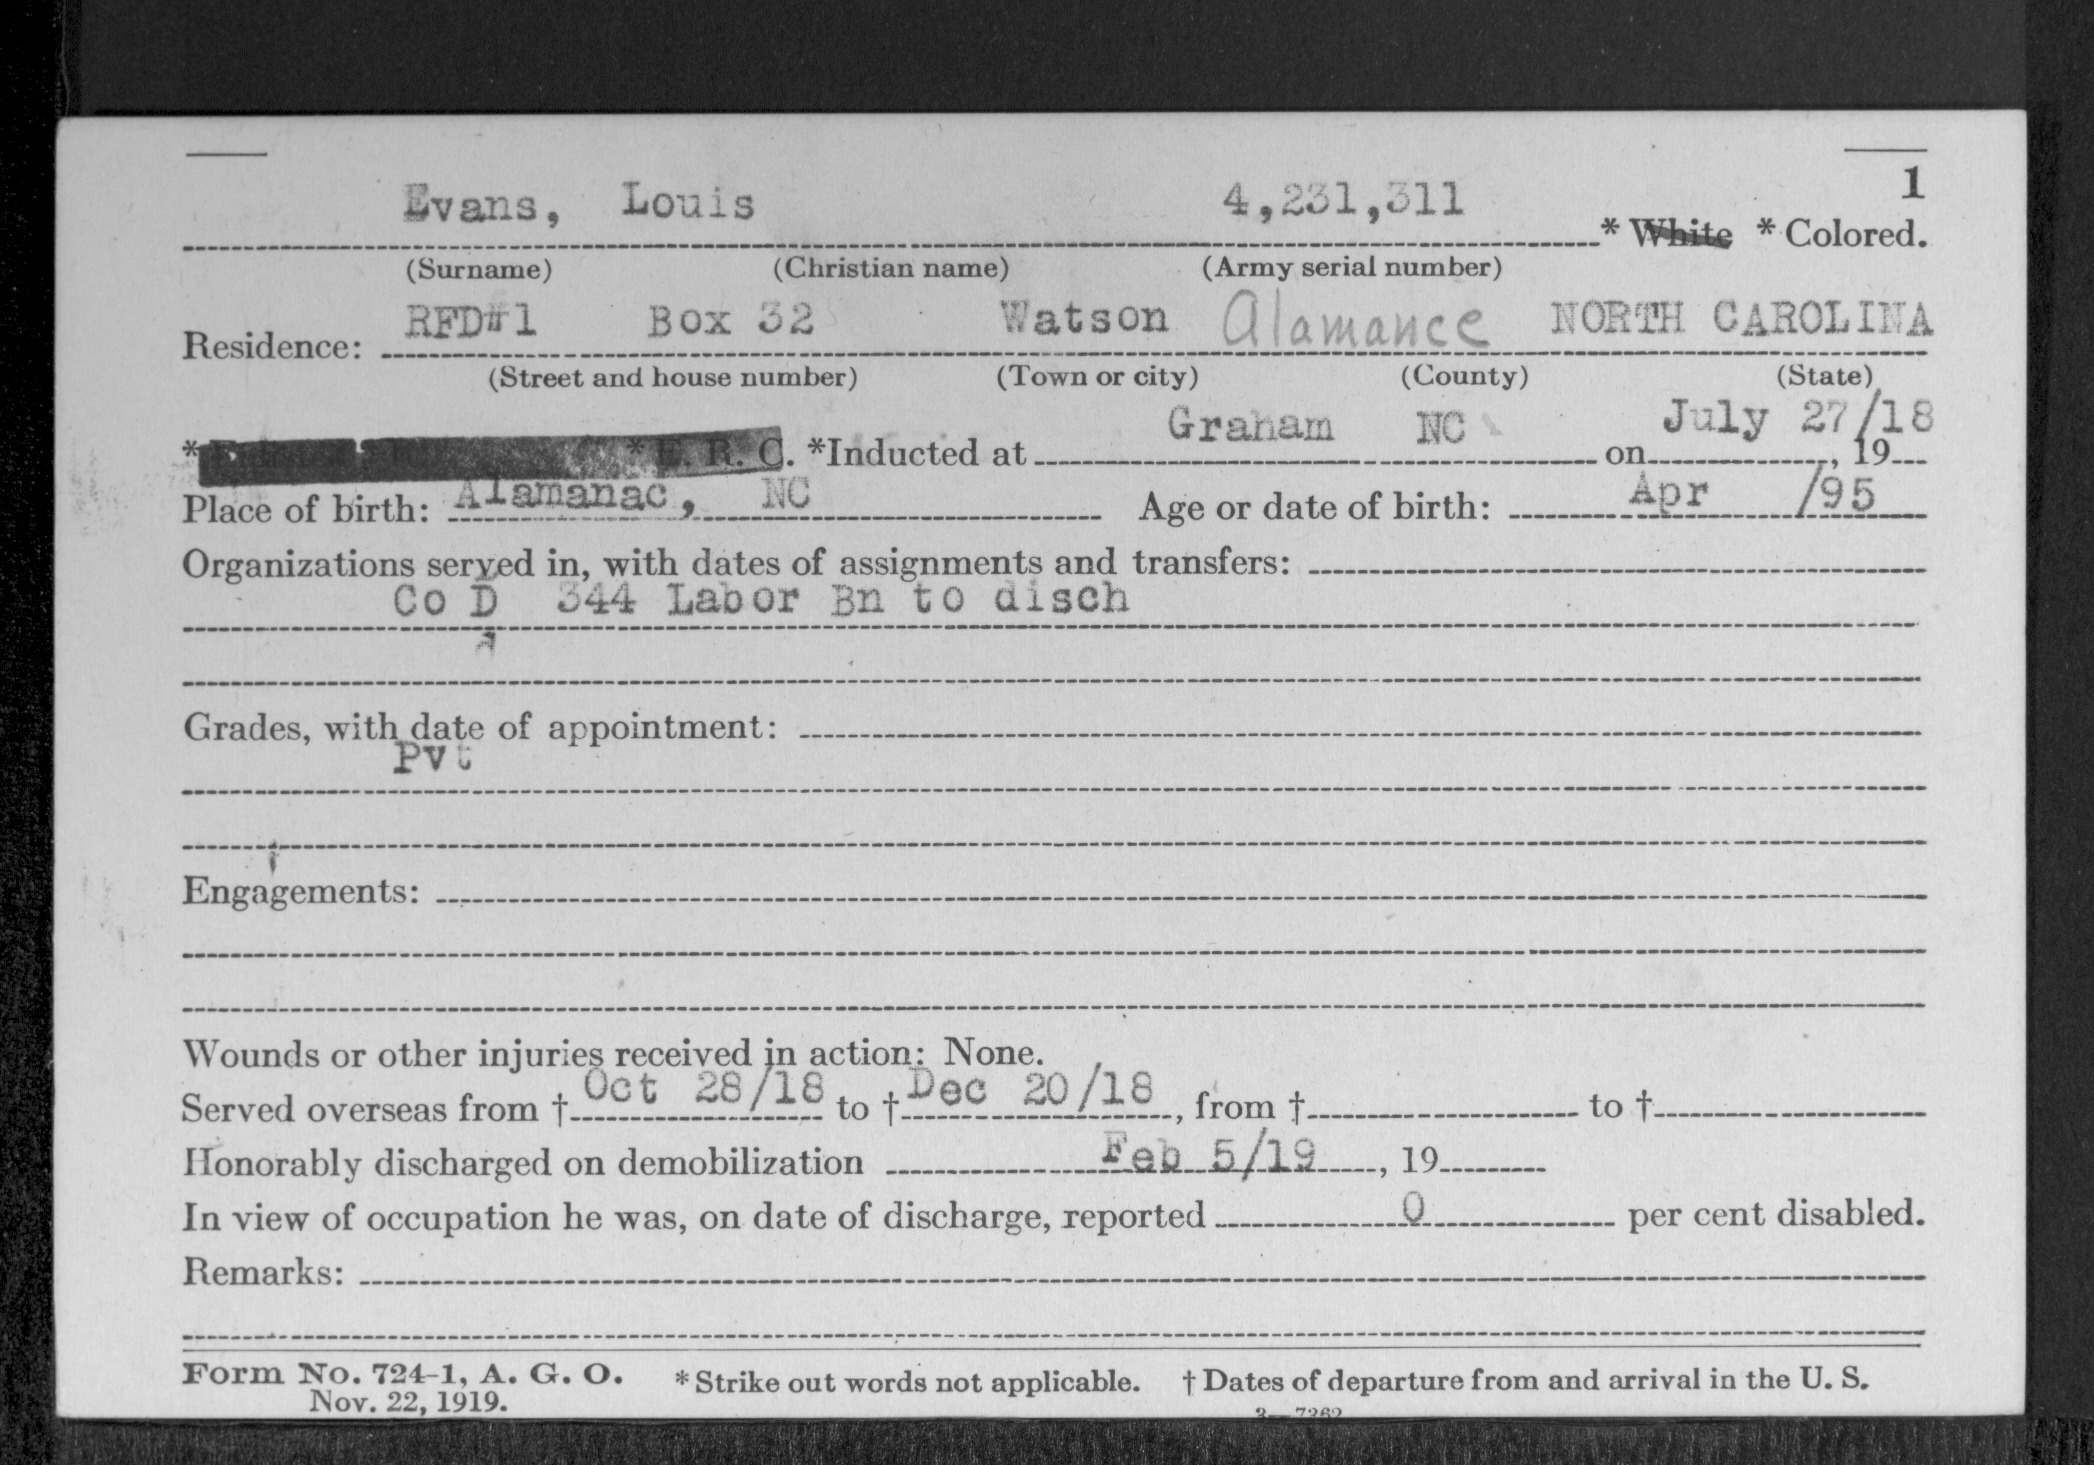 1
Evans, Louis 4,231,311 * White * Colored.
(Surname) (Christian name) (Army serial number)
Residence: RFD#1 Box 32 Watson Alamance NORTH CAROLINA
(Street and house number) (Town or city) (County) (State)
* E. R. C. *Inducted at Graham NC on July 27/18, 19
Place of birth: Alamanac, NC Age or date of birth: Apr /95
Organizations served in, with dates of assignments and transfers:
Co D 344 Labor Bn to disch
Grades, with date of appointment:
Pvt
Engagements:
Wounds or other injuries received in action: None.
Served overseas from † Oct 28/18 to † Dec 20/18, from † to †
Honorably discharged on demobilization Feb 5/19, 19
In view of occupation he was, on date of discharge, reported 0 per cent disabled.
Remarks:
Form No. 724-1, A. G. O. * Strike out words not applicable. † Dates of departure from and arrival in the U. S.
Nov. 22, 1919. 3—7262